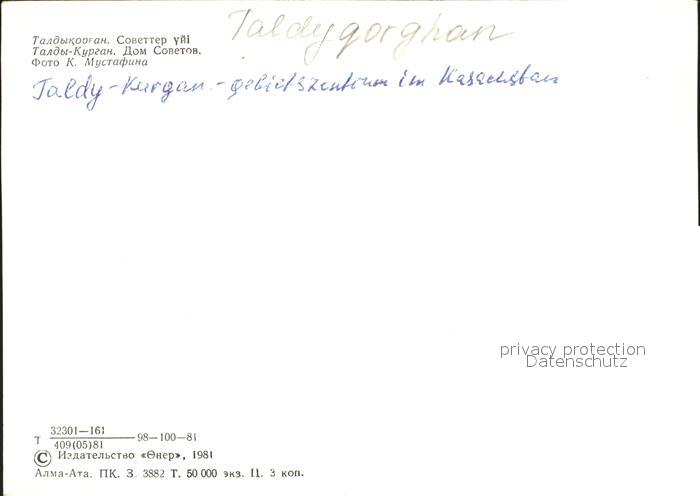 Taldyqorghan
Талдықорған. Советтер үйі
Талды-Курган. Дом Советов.
Фото К. Мустафина
Taldy-Kurgan.-gebietszentrum im Kasachstan
privacy protection
Datenschutz
Т 32301—161 98—100—81
409(05)81
© Издательство «Өнер», 1981
Алма-Ата. ПК. З. 3882 Т. 50 000 экз. Ц. 3 коп.